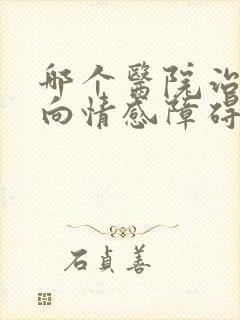 那个醫院治
向情感障碍
石貞善